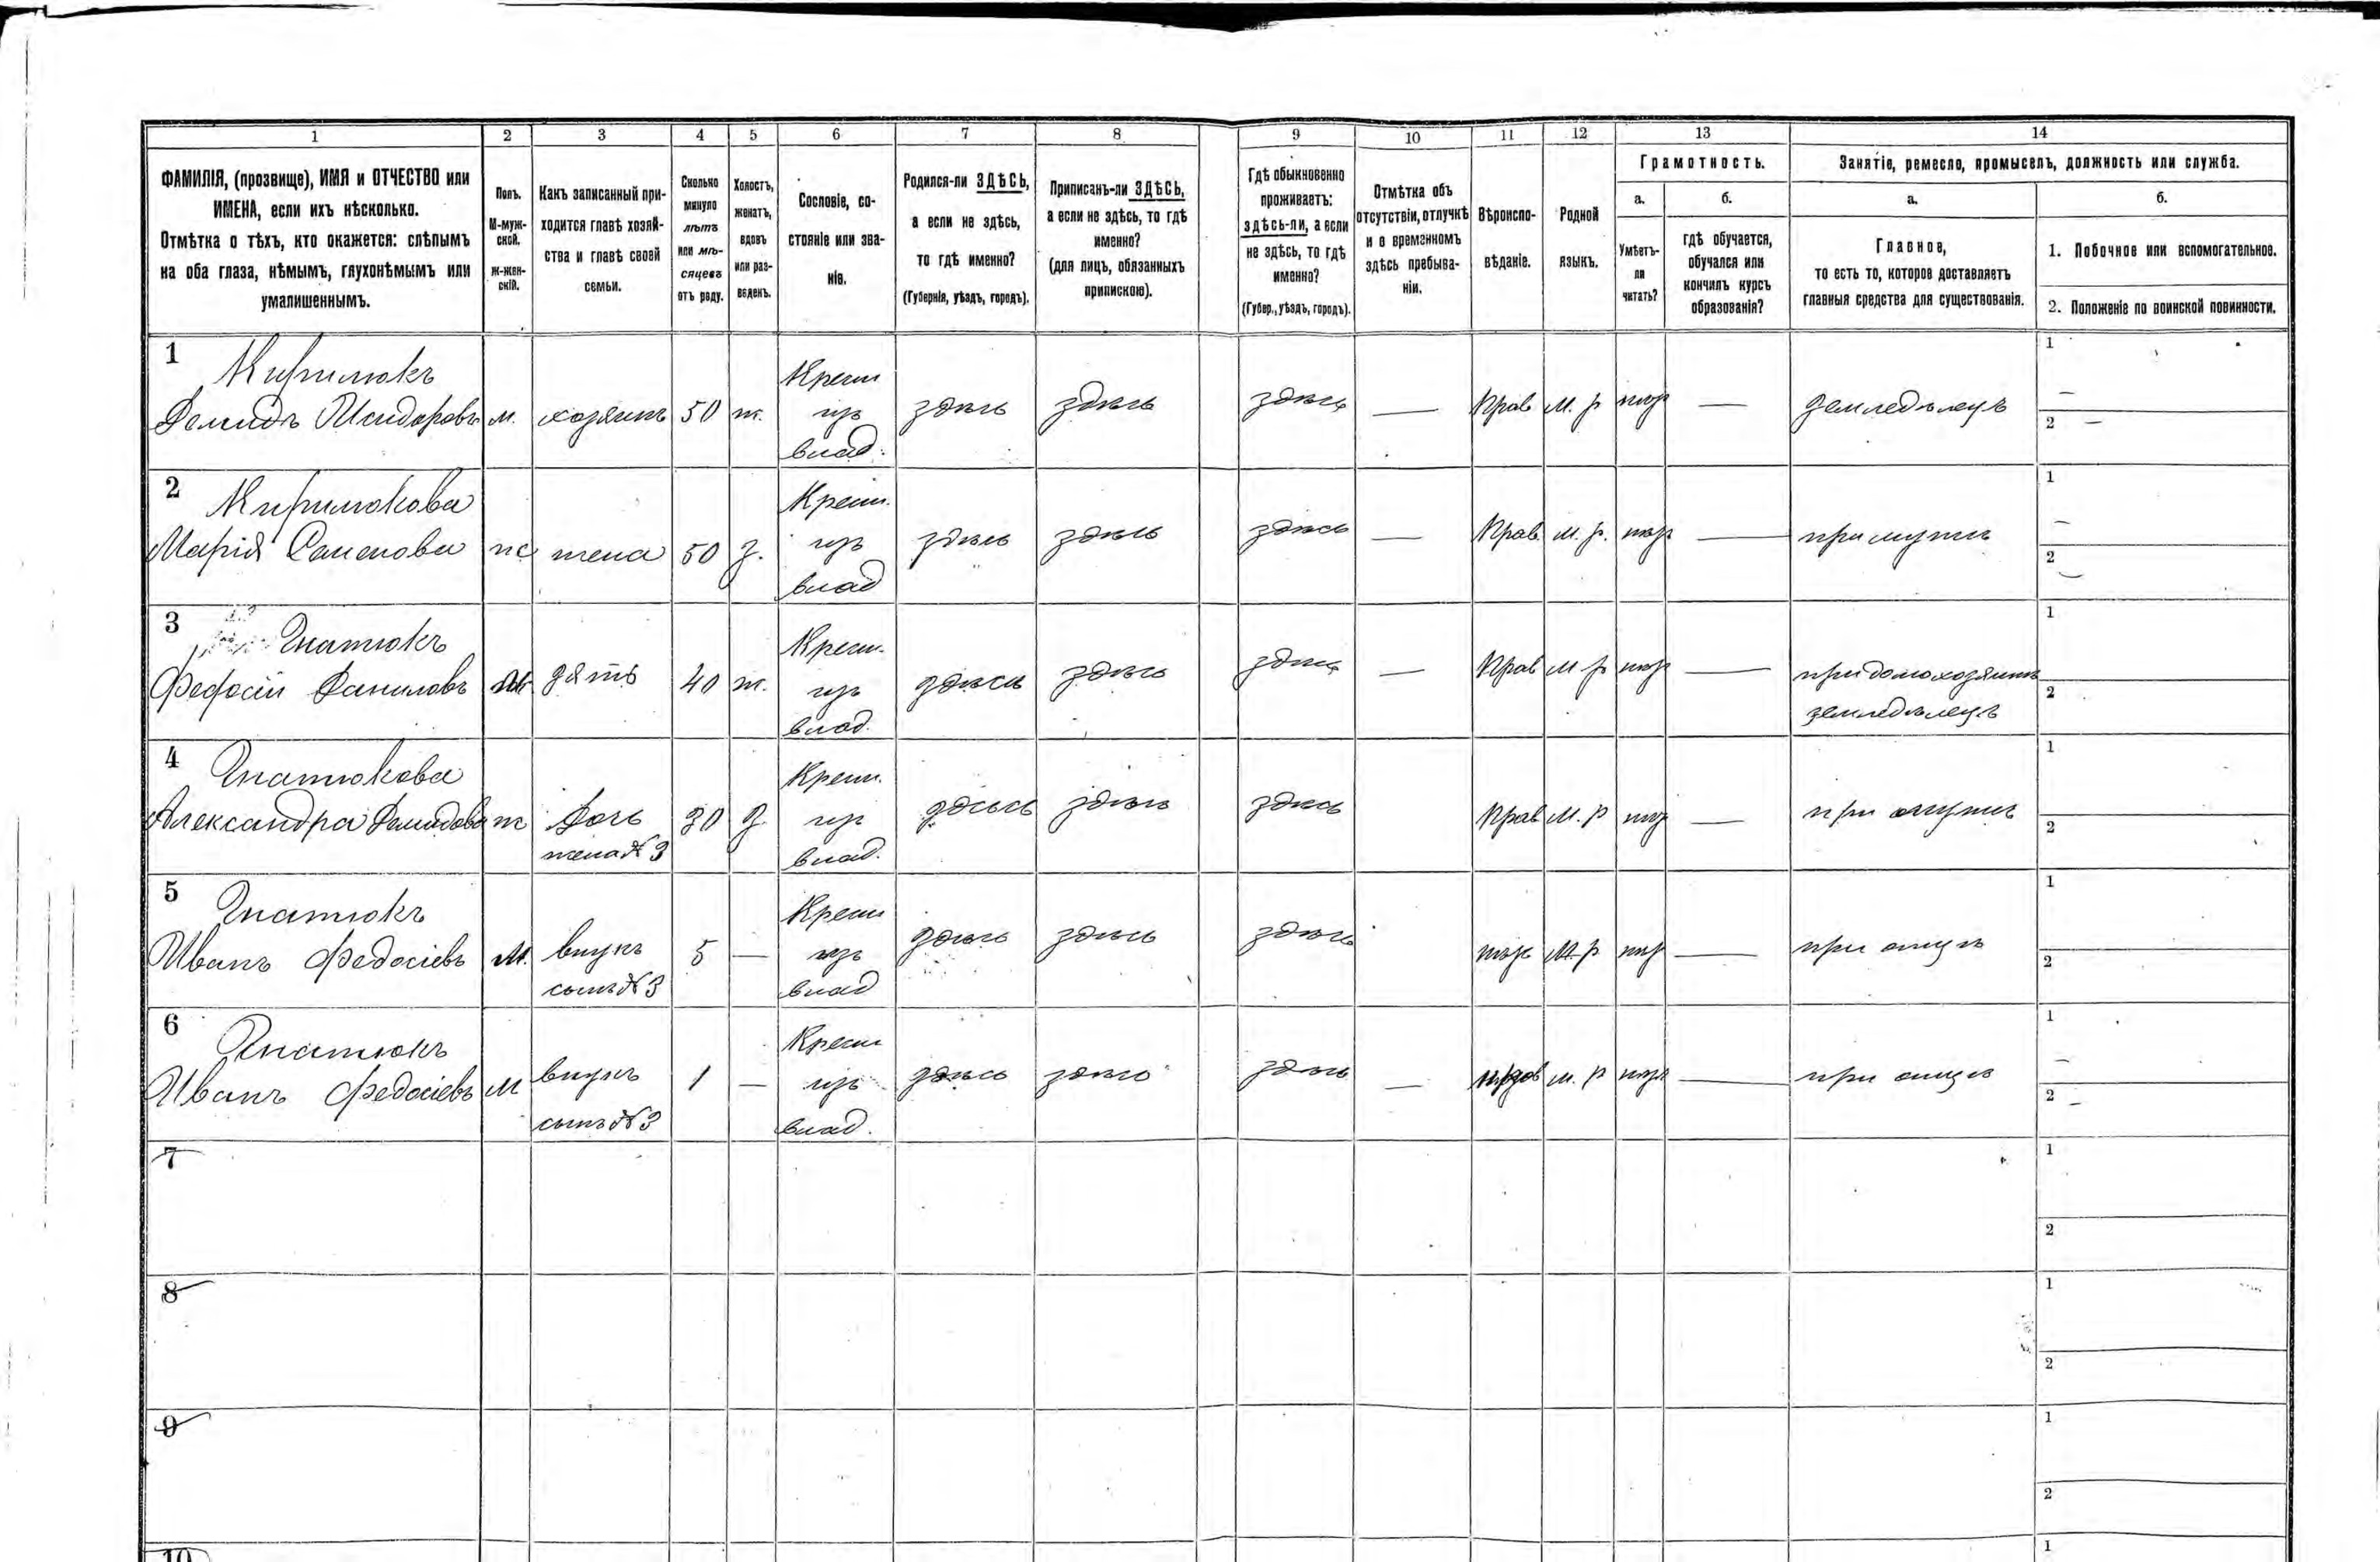 1 2 3 4 5 6 7 8 9 10 11 12 13 14
ФАМИЛІЯ, (прозвище), ИМЯ и ОТЧЕСТВО или
ИМЕНА, если ихъ нѣсколько.
Отмѣтка о тѣхъ, кто окажется: слѣпымъ
на оба глаза, нѣмымъ, глухонѣмымъ или
умалишеннымъ.
Полъ.
М-муж-
ской.
Ж-жен-
скій.
Какъ записанный при-
ходится главѣ хозяй-
ства и главѣ своей
семьи.
Сколько
минуло
лѣтъ
или мѣ-
сяцевъ
отъ роду.
Холостъ,
женатъ,
вдовъ
или раз-
веденъ.
Сословіе, со-
стояніе или зва-
ніе.
Родился-ли ЗДѢСЬ,
а если не здѣсь,
то гдѣ именно?
(Губернія, уѣздъ, городъ).
Приписанъ-ли ЗДѢСЬ,
а если не здѣсь, то гдѣ
именно?
(для лицъ, обязанныхъ
припискою).
Гдѣ обыкновенно
проживаетъ:
здѣсь-ли, а если
не здѣсь, то гдѣ
именно?
(Губер., уѣздъ, городъ).
Отмѣтка объ
отсутствіи, отлучкѣ
и о временномъ
здѣсь пребыва-
ніи.
Вѣроиспо-
вѣданіе.
Родной
языкъ.
Грамотность.
а.
Умѣетъ-
ли
читать?
б.
гдѣ обучается,
обучался или
кончилъ курсъ
образованія?
Занятіе, ремесло, промыселъ, должность или служба.
а.
Главное,
то есть то, которое доставляетъ
главныя средства для существованія.
б.
1. Побочное или вспомогательное.
2. Положеніе по воинской повинности.
1 Кирилюкъ
Демидъ Исидоровъ м. хозяинъ 50 ж. Крест
изъ
влад. здѣсь здѣсь здѣсь — Прав М. р — земледѣлецъ 1 —
2 —
2 Кирилюкова
Марія Семенова ж жена 50 з. Крест.
изъ
влад здѣсь здѣсь здѣсь — Прав м. р. — при мужѣ 1 —
2 —
3 Гнатюкъ
Федосій Даниловъ М зять 40 ж. Крест.
изъ
влад. здѣсь здѣсь здѣсь — Прав м р — при домохозяинѣ
земледѣлецъ 1
2
4 Гнатюкова
Александра Демидова ж Дочь
жена № 3 30 з Крест.
изъ
влад. здѣсь здѣсь здѣсь Прав М. р — 1
2
5 Гнатюкъ
Иванъ Федосіевъ М. внукъ
сынъ № 3 5 — Крест
изъ
влад здѣсь здѣсь здѣсь М. р — при отцѣ 1
2
6 Гнатюкъ
Иванъ Федосіевъ М внукъ
сынъ № 3 1 — Крест
изъ
влад. здѣсь здѣсь здѣсь — м. р — при отцѣ 1 —
2 —
7 1
2
8 1
2
9 1
2
10 1